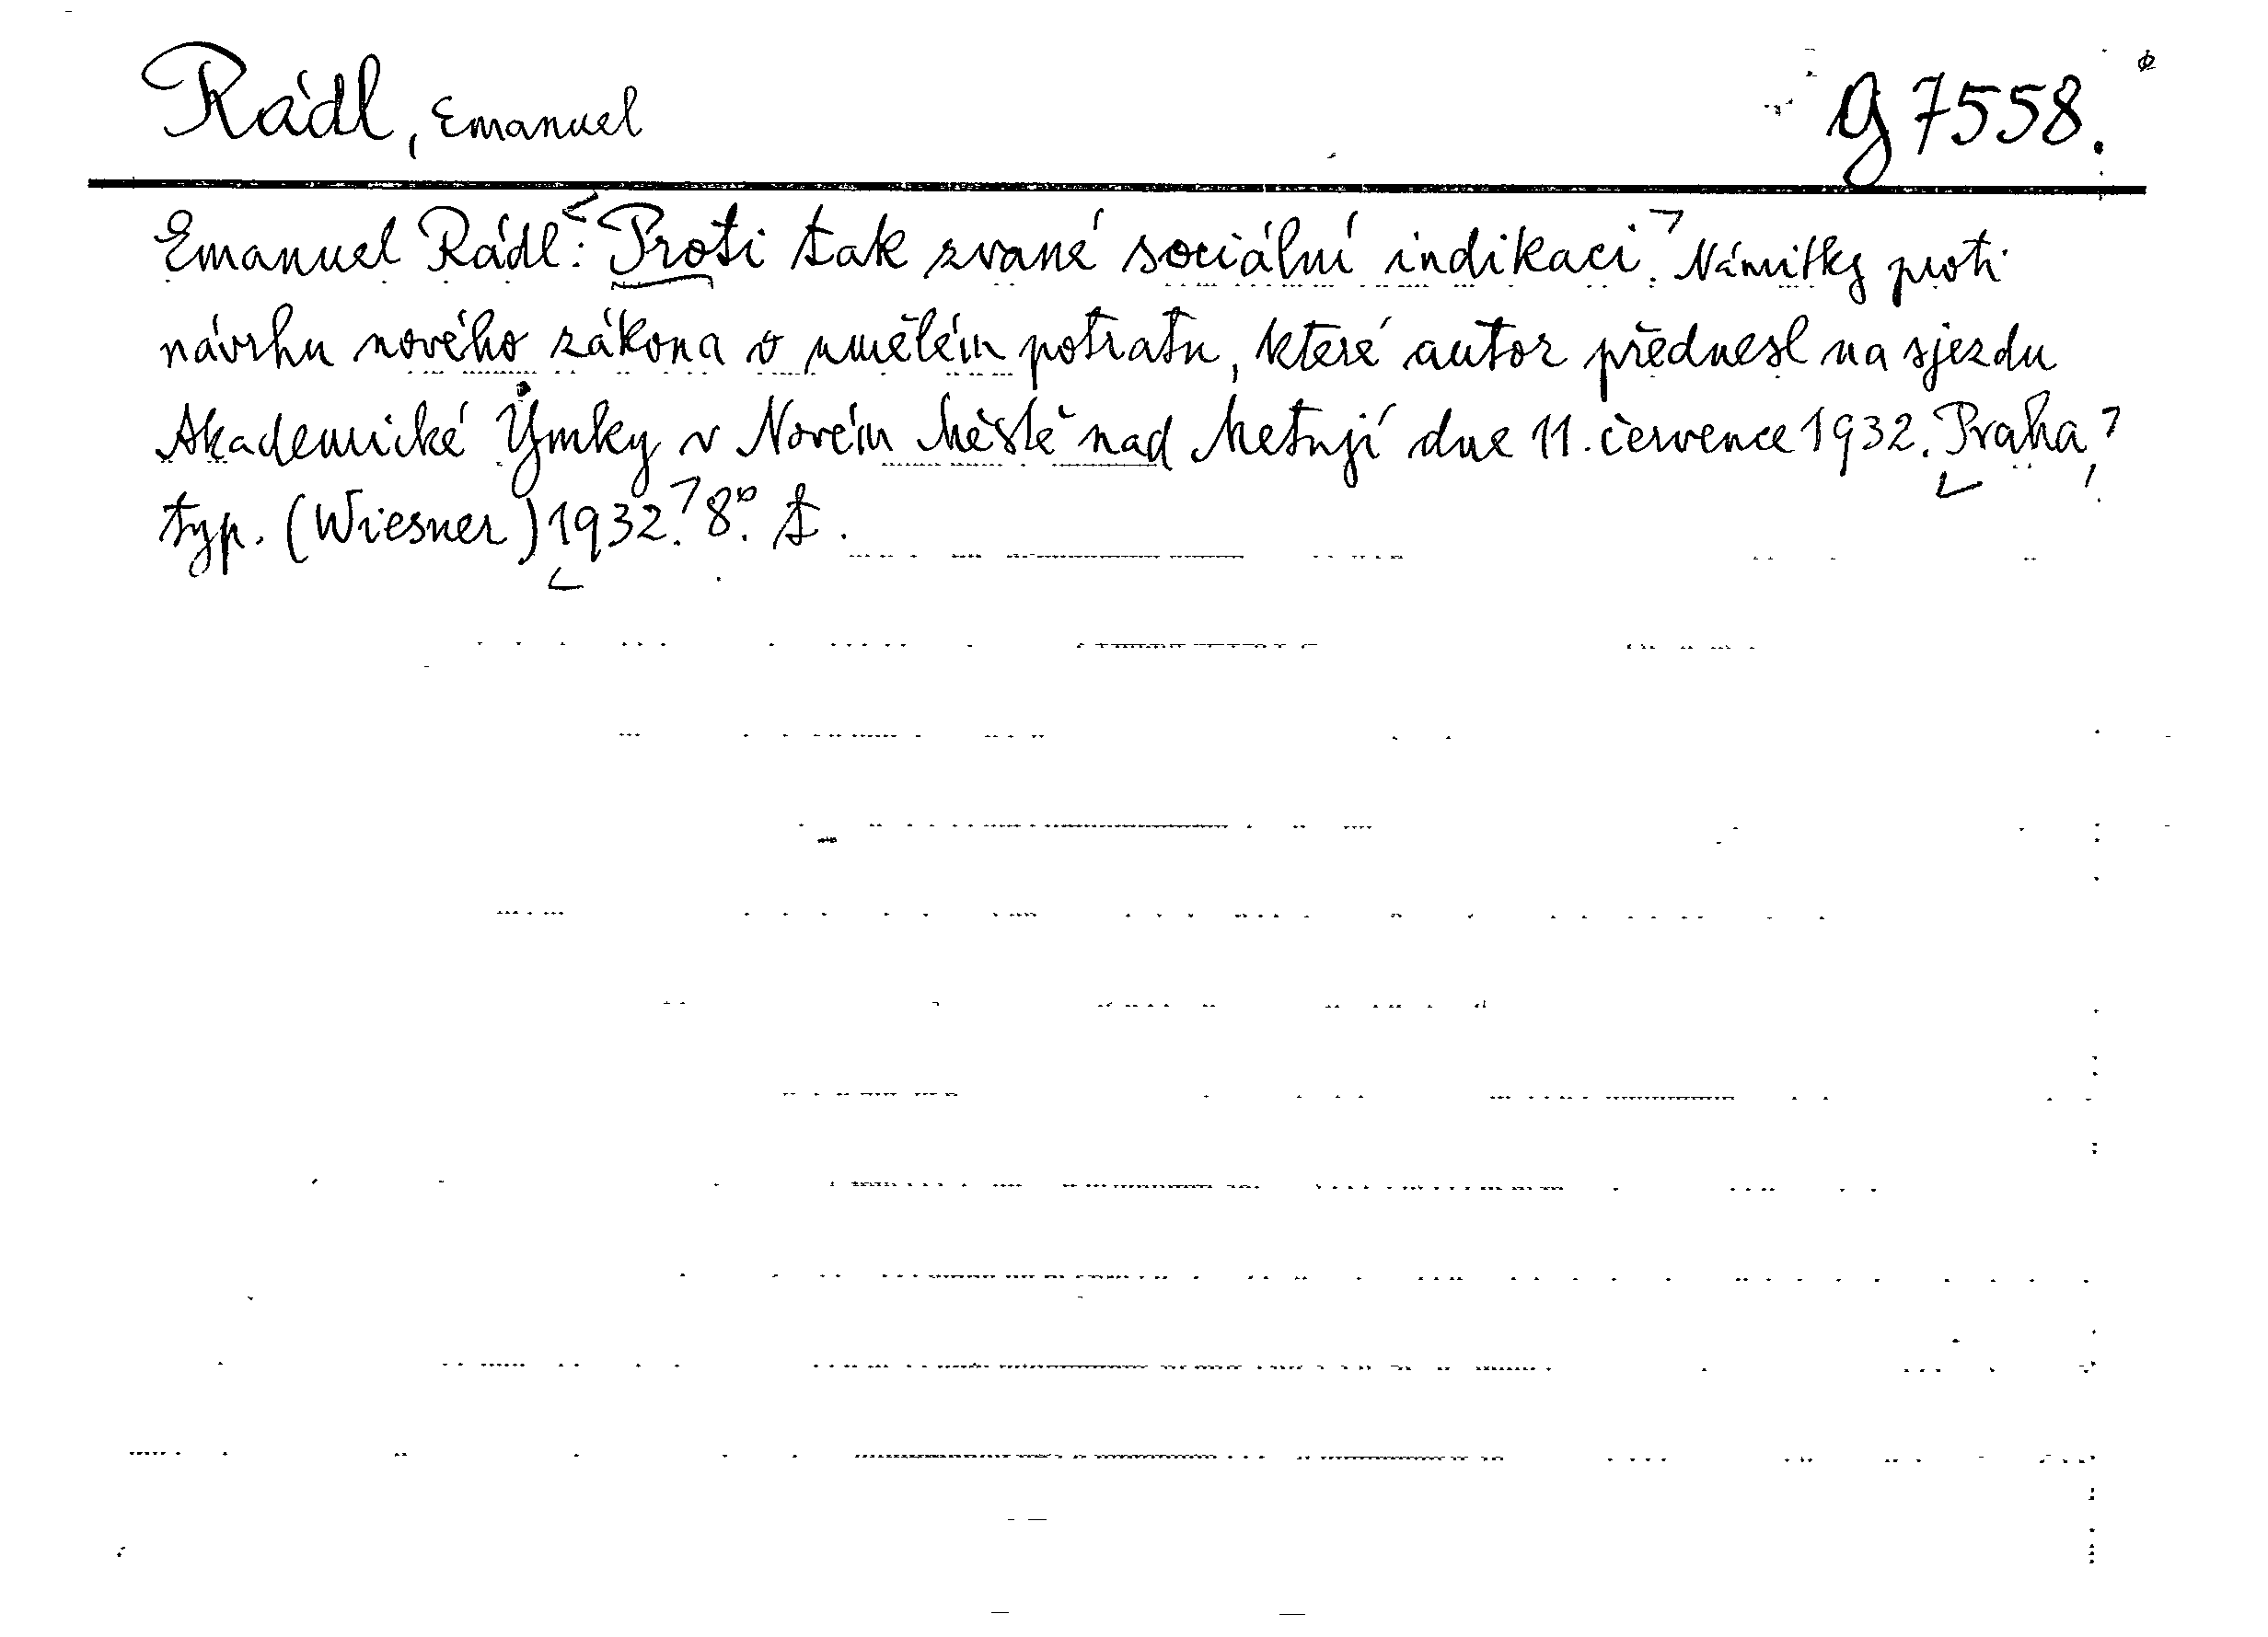 Rádl, Emanuel
g 7558.
Emanuel Rádl: <Proti tak zvané sociální indikaci.> Námitky proti
návrhu nového zákona o umělém potratu, které autor přednesl na sjezdu
Akademické Ymky v Novém Městě nad Metují dne 11. července 1932. <Praha>,
typ. (Wiesner) <1932.> 8°. t.